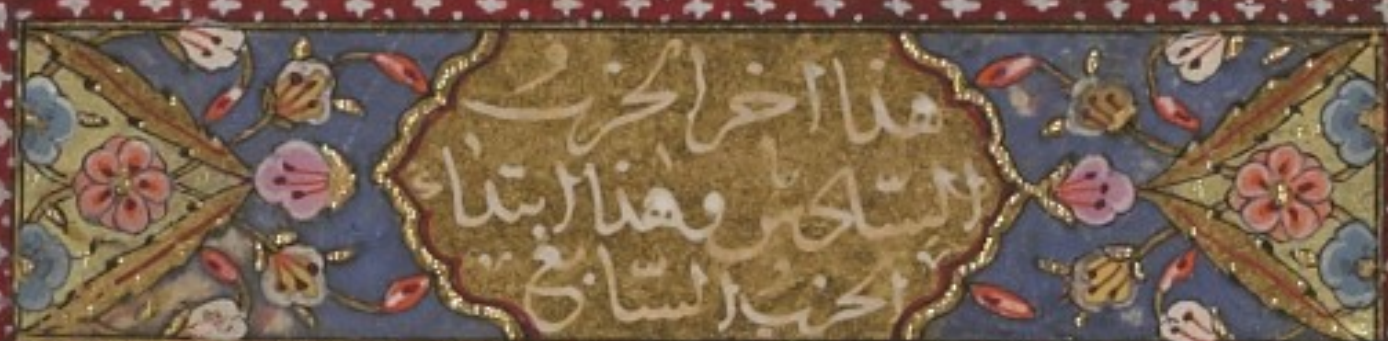 هذا اخر الحزب
السّادس وهذا ابتداء
الحزب السّابع